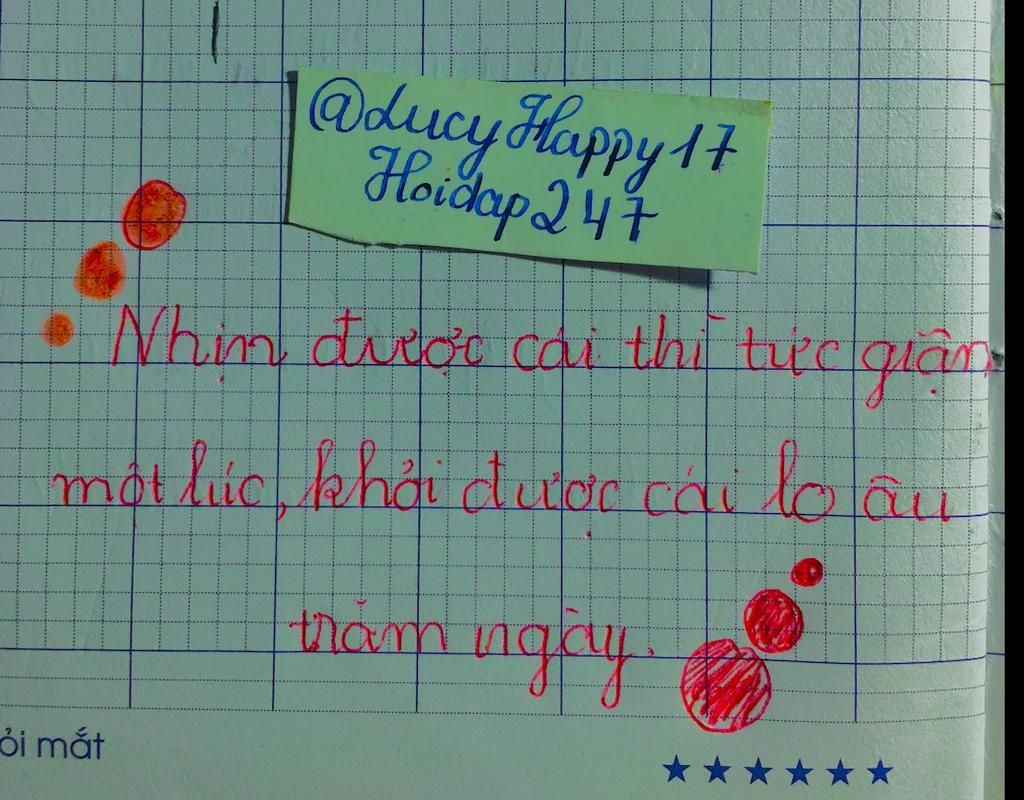 @LucyHappy17
Hoidap247
Nhịn được cái thì tức giận
một lúc, khỏi được cái lo âu
trăm ngày.
ỏi mắt
★★★★★★